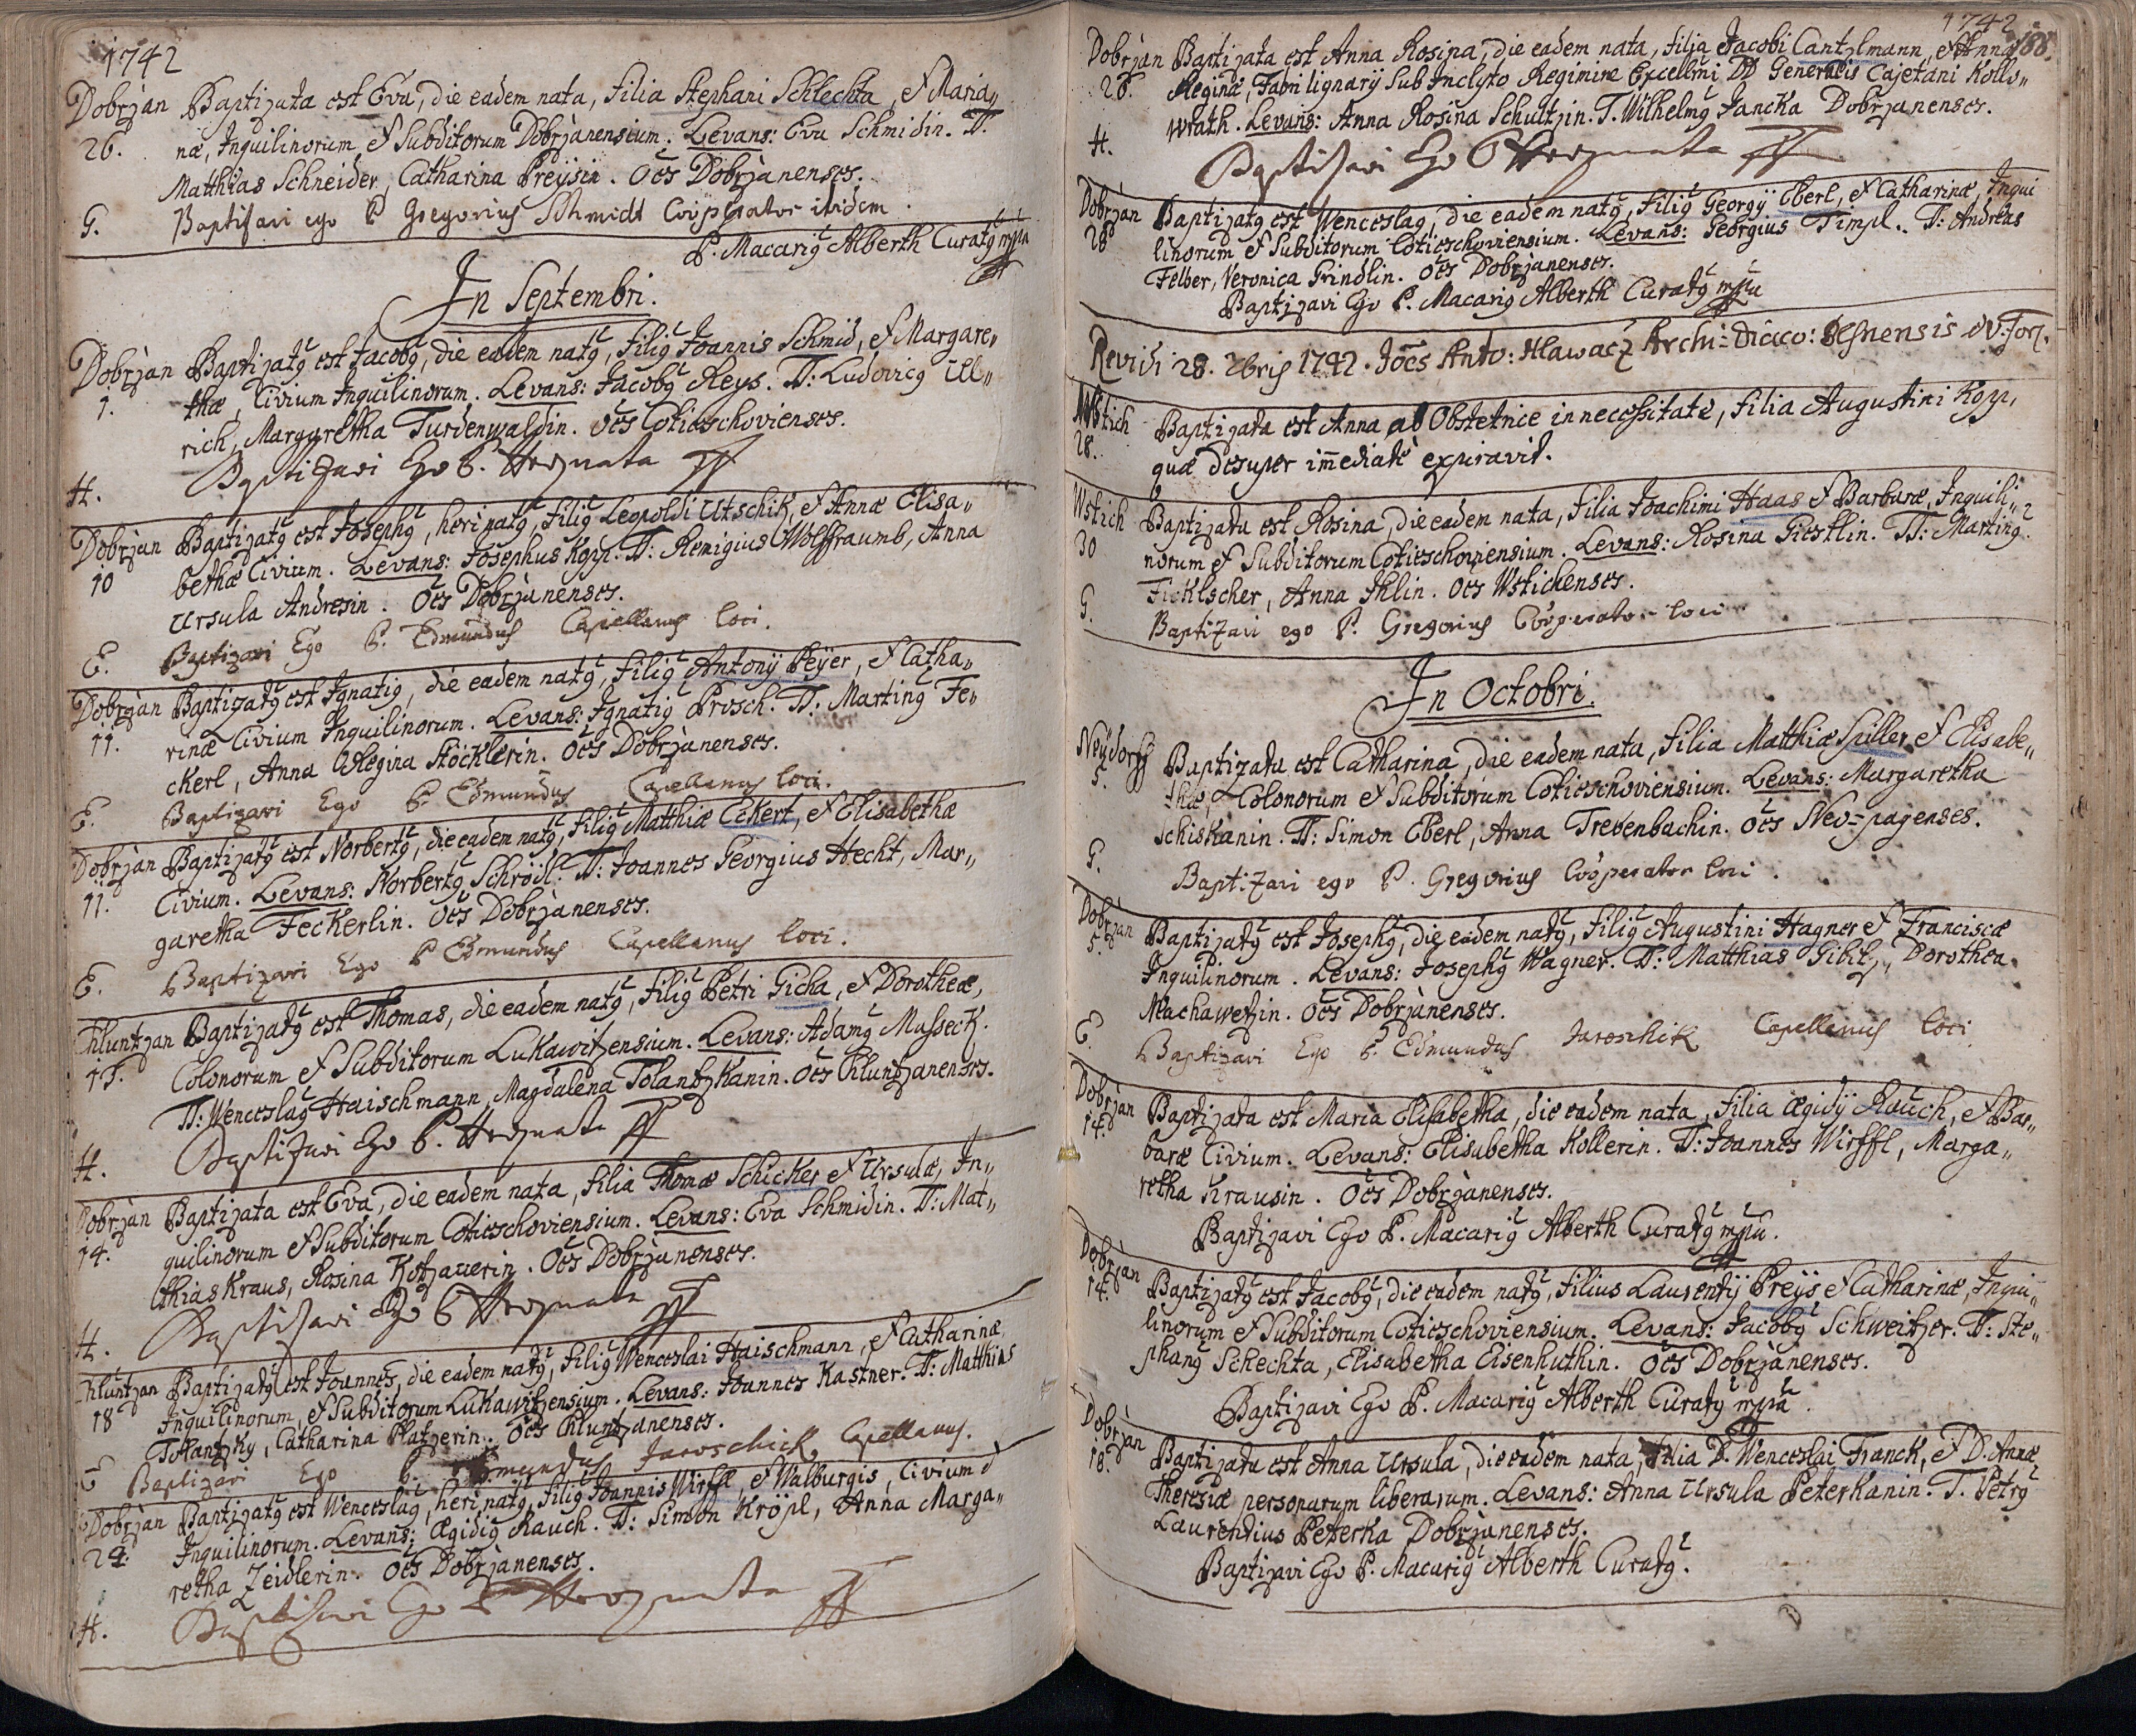 1742
Dobrzan Baptizata est Eva, die eadem nata, Filia Stephani Schlechta, et Maria„
26. næ, Inquilinorum et Subditorum Dobrzanensium. Levans: Eva Schmidin. TT.
Matthias Schneider, Catharina Preysin. Oēs Dobrzanenses.
G. Baptisavi ego P. Gregorius Schmidt Cooperator ibidem.
P. Macariꝰ Alberth Curatꝰ mpia
In Septembri.
Dobrzan Baptizatꝰ est Jacobꝰ, die eadem natꝰ, Filiꝰ Joannis Schmid, et Margare„
1. thæ, Civium Inquilinorum. Levans: Jacobꝰ Reys. TT: Ludovicꝰ Ul„
rich, Margaretha Turdenwaldin. Oēs Cotieschovienses.
H. Baptizavi Ego P. Hroznata
Dobrzan Baptizatꝰ est Josephꝰ, heri natꝰ, Filiꝰ Leopoldi Utschik, et Annæ Elisa„
10 bethæ Civium. Levans: Josephus Kopp. TT: Remigius Wolffraumb, Anna
Ursula Andresin. Oēs Dobrzanenses.
E. Baptizavi Ego P. Edmundus Capellanus loci.
Dobrzan Baptizatꝰ est Ignatiꝰ, die eadem natꝰ, Filiꝰ Antonij Peyer, et Catha„
11. rinæ Civium Inquilinorum. Levans: Ignatiꝰ Prosch. TT: Martinꝰ Fe„
ckerl, Anna Regina Stöcklerin. Oēs Dobrzanenses.
E. Baptizavi Ego P. Edmundus Capellanus loci.
Dobrzan Baptizatꝰ est Norbertꝰ, die eadem natꝰ, Filiꝰ Matthiæ Eckert, et Elisabethæ
11. Civium. Levans: Norbertꝰ Schrödl. TT: Joannes Georgius Hecht, Mar„
garetha Feckerlin. Oēs Dobrzanenses.
E. Baptizavi Ego P Edmundus Capellanus loci.
Chluntzan Baptizatꝰ est Thomas, die eadem natꝰ, Filiꝰ Petri Gicha, et Dorotheæ,
13. Colonorum et Subditorum Lukawitzensium. Levans: Adamꝰ Musseck.
TT: Wenceslaꝰ Haischmann, Magdalena Tolantzkanin. Oēs Chluntzanenses.
H. Baptizavi Ego P. Hroznata
Dobrzan Baptizata est Eva, die eadem nata, Filia Thomæ Schicker et Ursulæ, In„
14. quilinorum et Subditorum Cotieschoviensium. Levans: Eva Schmidin. TT: Mat„
thias Kraus, Rosina Kotzauerin. Oēs Dobrzanenses.
H. Baptisavi Ego P Hroznata
Chluntzan Baptizatꝰ est Joannes, die eadem natꝰ, Filiꝰ Wenceslai Haischmann, et Catharinæ
18 Inquilinorum, et Subditorum Lukawitzensium. Levans: Joannes Kastner. TT: Matthias
Tolantzky, Catharina Platzerin. Oēs Chluntzanenses.
E Baptizavi Ego P. Edmundus Jaroschick Capellanus.
Dobrzan Baptizatꝰ est Wenceslaꝰ, heri natꝰ, Filiꝰ Joannis Wirffl, et Walburgis, Civium
24. Inquilinorum. Levans: Ægidiꝰ Rauch. TT: Simon Kröpl, Anna Marga„
retha Zeidlerin. Oēs Dobrzanenses.
H. Baptisavi Ego P Hroznata
1742
188.
Dobrzan Baptizata est Anna Rosina, die eadem nata, Filia Jacobi Cantzlmann, et Annæ
26. Reginæ, Fabri lignarij Sub Inclyto Regimine Excellmi DD Generalis Cajetani Kollo„
wrath. Levans: Anna Rosina Schultzin. T. Wilhelmꝰ Jancka Dobrzanenses.
H. Baptisavi Ego P Hroznata
Dobrzan Baptizatꝰ est Wenceslaꝰ, die eadem natꝰ, Filiꝰ Georgij Eberl, et Catharinæ, Inqui
28 linorum et Subditorum Cotieschoviensium. Levans: Georgius Timpl. TT: Andreas
Felber, Veronica Grindlin. Oēs Dobrzanenses.
Baptizavi Ego P. Macariꝰ Alberth Curatꝰ mpia
Revidi 28. 7bris 1742. Joēs Anto: Hlawacz Archi-Diaco:
Wstich Baptizata est Anna ab Obstetrice in necessitate, Filia Augustini Kopp,
28. quæ desuper im̄ediatè expiravit.
Wstich Baptizata est Rosina, die eadem nata, Filia Joachimi Haas et Barbaræ, Inquili„
30 norum et Subditorum Cotieschoviensium. Levans: Rosina Giestlin. TT: Martinꝰ
Ficklscher, Anna Ihlin. Oēs Wstichenses.
G. Baptizavi ego P. Gregorius Cooperator loci
In Octobri.
Neydorff Baptizata est Catharina, die eadem nata, Filia Matthiæ Spiller et Elisabe„
5. thæ, Colonorum et Subditorum Cotieschoviensium. Levans: Margaretha
Schiskanin. TT: Simon Eberl, Anna Trevenbachin. Oēs Neo-pagenses.
G. Baptizavi ego P. Gregorius Cooperator loci.
Dobrzan Baptizatꝰ est Josephꝰ, die eadem natꝰ, Filiꝰ Augustini Hagner et Franciscæ
5. Inquilinorum. Levans: Josephꝰ Wagner. TT: Matthias Gibitz, Dorothea
Machawetzin. Oēs Dobrzanenses.
E. Baptizavi Ego P. Edmundus Jaroschik Capellanus loci
Dobrzan Baptizata est Maria Elisabetha, die eadem nata, Filia Ægidij Rauch, et Bar„
14. baræ Civium. Levans: Elisabetha Kollerin. TT: Joannes Wirffl, Marga„
retha Krausin. Oēs Dobrzanenses.
Baptizavi Ego P. Macariꝰ Alberth Curatꝰ mpia.
Dobrzan Baptizatꝰ est Jacobꝰ, die eadem natꝰ, Filius Laurentij Preys et Catharinæ, Inqui„
14. linorum et Subditorum Cotieschoviensium. Levans: Jacobꝰ Schweitzer. TT: Ste„
phanꝰ Schechta, Elisabetha Eisenhuthin. Oēs Dobrzanenses.
Baptizavi Ego P. Macariꝰ Alberth Curatꝰ mpia.
Dobrzan Baptizata est Anna Ursula, die eadem nata, Filia D. Wenceslai Franck, et D. Annæ
18. Theresiæ personarum liberarum. Levans: Anna Ursula Peterkanin. T. Petrꝰ
Laurentius Peterka Dobrzanenses.
Baptizavi Ego P. Macariꝰ Alberth Curatꝰ.